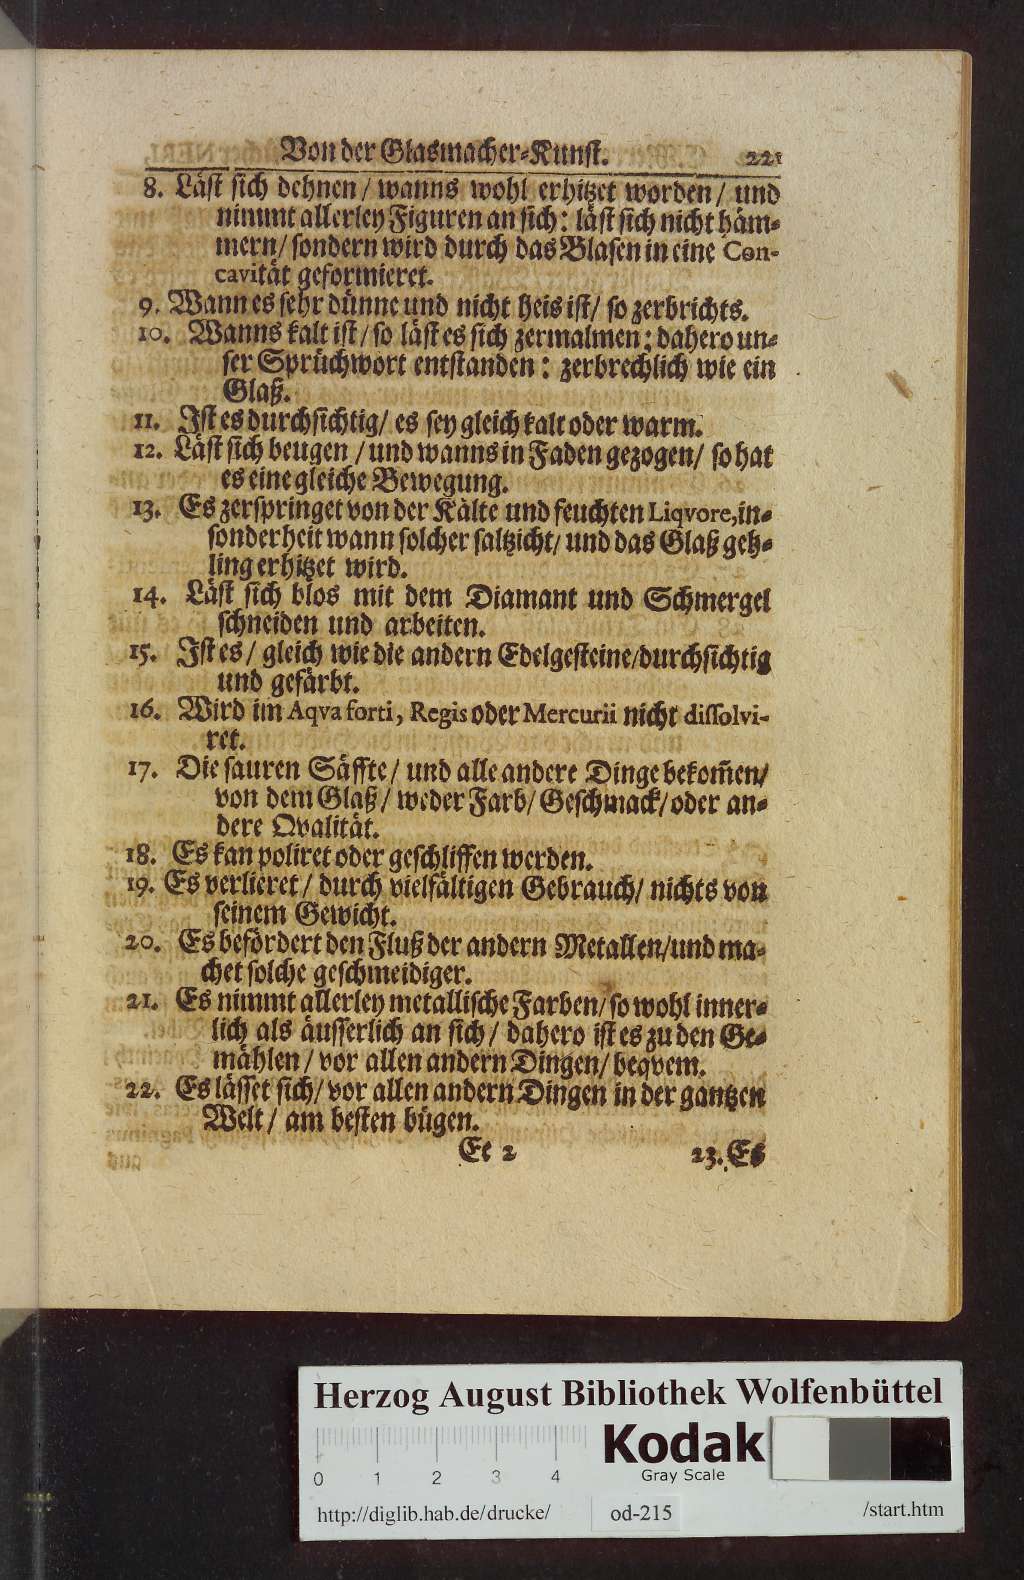 Von der Glasmacher-Kunst. 221
8. Läst sich dehnen / wanns wohl erhitzet worden / und
nimmt allerley Figuren an sich: läst sich nicht häm-
mern / sondern wird durch das Blasen in eine Con-
cavität geformieret.
9. Wann es sehr dünne und nicht heis ist / so zerbrichts.
10. Wanns kalt ist / so läst es sich zermalmen; dahero un-
ser Sprüchwort entstanden: zerbrechlich wie ein
Glaß.
11. Ist es durchsichtig / es sey gleich kalt oder warm.
12. Läst sich beugen / und wanns in Faden gezogen / so hat
es eine gleiche Bewegung.
13. Es zerspringet von der Kälte und feuchten Liqvore, in-
sonderheit wann solcher saltzicht / und das Glaß geh-
ling erhitzet wird.
14. Läst sich blos mit dem Diamant und Schmergel
schneiden und arbeiten.
15. Ist es / gleich wie die andern Edelgesteine / durchsichtig
und gefärbt.
16. Wird im Aqva forti, Regis oder Mercurii nicht dissolvi-
ret.
17. Die sauren Säffte / und alle andere Dinge bekom̃en /
von dem Glaß / weder Farb / Geschmack / oder an-
dere Qvalität.
18. Es kan poliret oder geschliffen werden.
19. Es verlieret / durch vielfältigen Gebrauch / nichts von
seinem Gewicht.
20. Es befördert den Fluß der andern Metallen / und ma-
chet solche geschmeidiger.
21. Es nimmt allerley metallische Farben / so wohl inner-
lich als äusserlich an sich / dahero ist es zu den Ge-
mählen / vor allen andern Dingen / beqvem.
22. Es lässet sich / vor allen andern Dingen in der gantzen
Welt / am besten bügen.
Ee 2 23. Es
Herzog August Bibliothek Wolfenbüttel
Kodak
Gray Scale
0 1 2 3 4
http://diglib.hab.de/drucke/ od-215 /start.htm